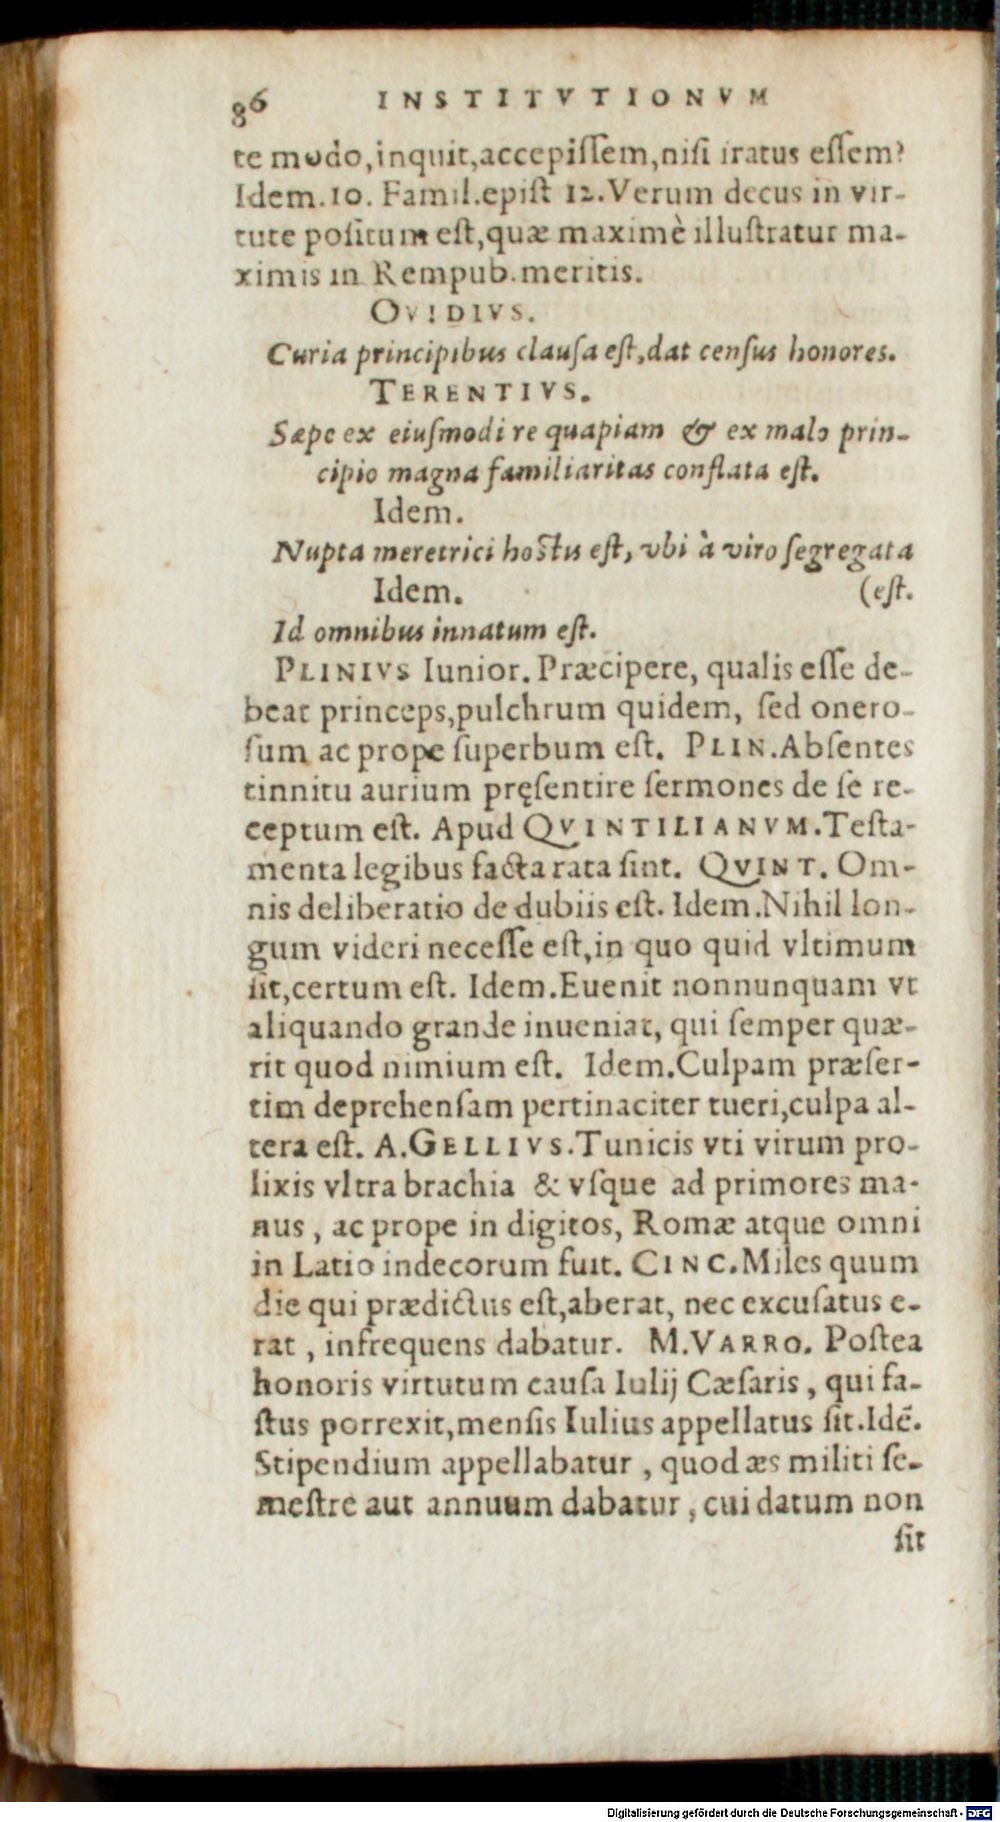 86 INSTITVTIONVM
te modo,inquit,accepiſſem,niſi iratus eſſem?
Idem.10. Famil.epiſt 12.Verum decus in vir-
tute poſitum eſt,quæ maximè illuſtratur ma-
ximis in Rempub.meritis.
OVIDIVS.
Curia principibus clauſa eſt,dat cenſus honores.
TERENTIVS.
Sæpe ex eiuſmodi re quapiam & ex malo prin-
cipio magna familiaritas conflata eſt.
Idem.
Nupta meretrici hoſtis eſt, vbi à viro ſegregata
Idem. (eſt.
Id omnibus innatum eſt.
PLINIVS Iunior. Præcipere, qualis eſſe de-
beat princeps,pulchrum quidem, ſed onero-
ſum ac prope ſuperbum eſt. PLIN.Abſentes
tinnitu aurium pręſentire ſermones de ſe re-
ceptum eſt. Apud QVINTILIANVM.Teſta-
menta legibus facta rata ſint. QVINT. Om-
nis deliberatio de dubiis eſt. Idem.Nihil lon-
gum videri neceſſe eſt,in quo quid vltimum
ſit,certum eſt. Idem.Euenit nonnunquam vt
aliquando grande inueniat, qui ſemper quæ-
rit quod nimium eſt. Idem.Culpam præſer-
tim deprehenſam pertinaciter tueri,culpa al-
tera eſt. A.GELLIVS.Tunicis vti virum pro-
lixis vltra brachia & vſque ad primores ma-
nus, ac prope in digitos, Romæ atque omni
in Latio indecorum fuit. CINC.Miles quum
die qui prædictus eſt,aberat, nec excuſatus e-
rat, infrequens dabatur. M.VARRO. Poſtea
honoris virtutum cauſa Iulij Cæſaris, qui fa-
ſtus porrexit,menſis Iulius appellatus ſit.Idẽ.
Stipendium appellabatur, quod æs militi ſe-
meſtre aut annuum dabatur, cui datum non
ſit
Digitalisierung gefördert durch die Deutsche Forschungsgemeinschaft - DFG